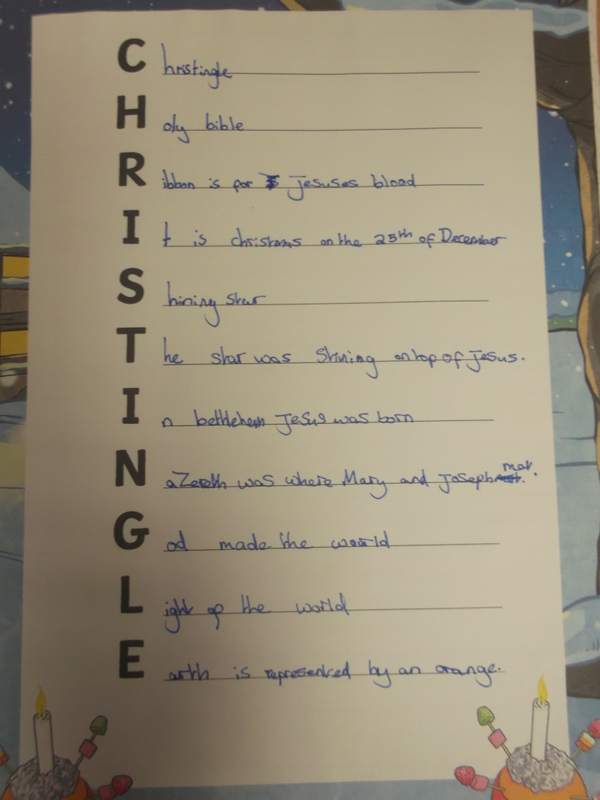 Christingle
Holy bible
Ribbon is for Jesuses blood
It is christmas on the 25th of December
Shining Star
The star was Shining on top of Jesus.
In bethlehem Jesus was born
NaZereth was where Mary and Joseph met.
God made the world
Light up the world
Earth is represented by an orange.